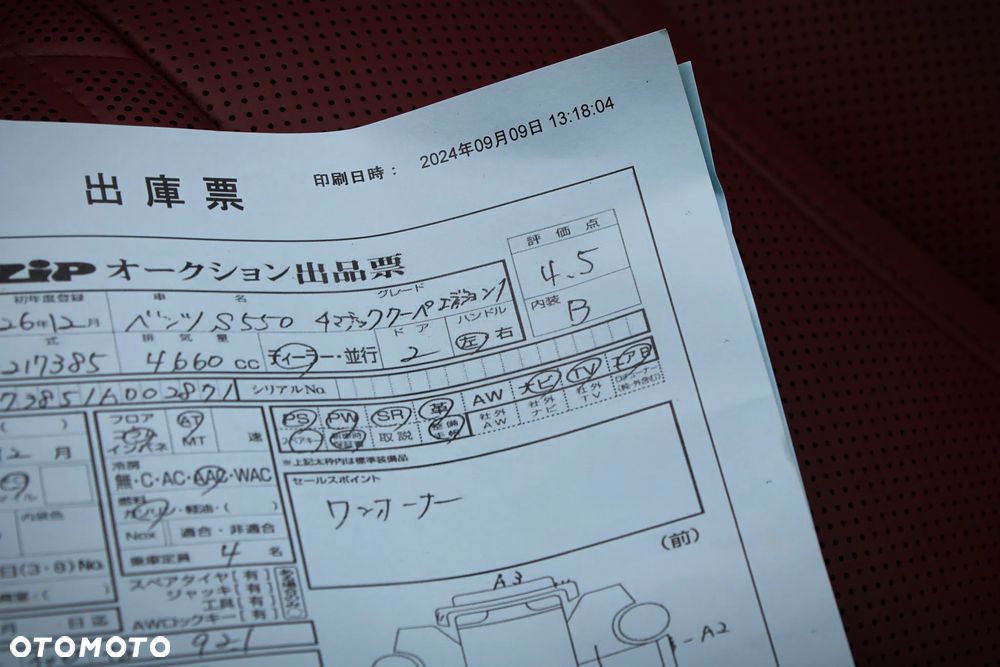 印刷日時： 2024年09月09日 13:18:04
出庫票
ZiP オークション出品票
評価点
4.5
内装
B
初年度登録 車名 グレード
26年12月 ベンツS550 4マチッククーペエディション1
式 排気量 ドア ハンドル
217385 4660cc ディーラー・並行 2 左 右
シリアルNo.
PS PW SR 革 AW ナビ TV エアB
スペアキー 取説 社外AW 社外ナビ 社外TV
※上記太枠内は標準装備品
フロア AT
MT 速
インパネ
冷房
無・C・AC・AAC・WAC
燃料
ガソリン・軽油・( )
Nox 適合・非適合
乗車定員 4 名
スペアタイヤ[有]
ジャッキ[有]
工具[有]
AWロックキー[有]
セールスポイント
ワンオーナー
(前)
2月
内装色
日(3・8)No.
月 日迄
921
A3
A2
OTOMOTO